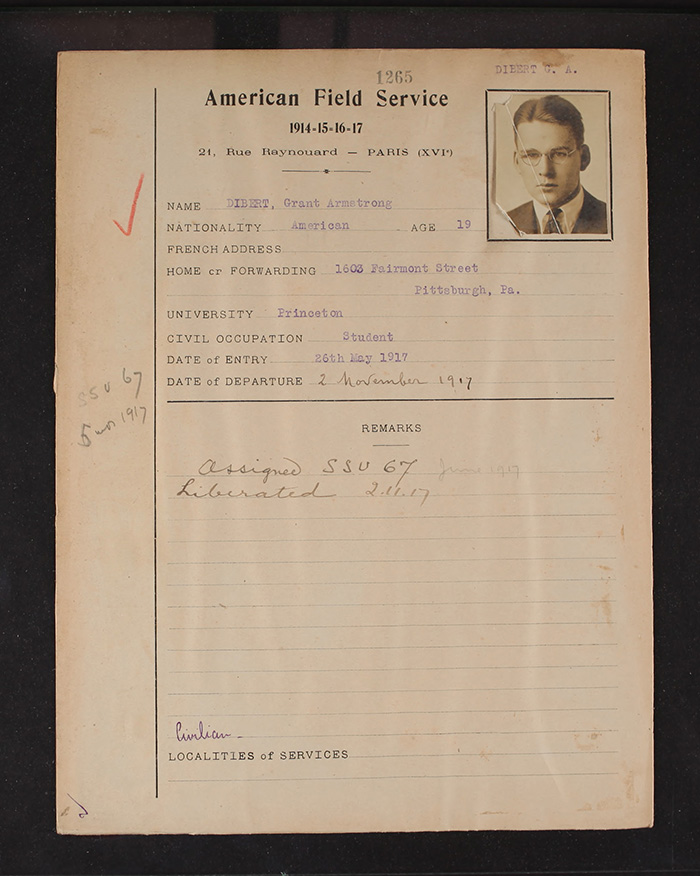 1265
DIBERT G. A.
American Field Service
1914-15-16-17
21, Rue Raynouard — PARIS (XVIe)
NAME DIBERT, Grant Armstrong
NATIONALITY American AGE 19
FRENCH ADDRESS
HOME or FORWARDING 1603 Fairmont Street
Pittsburgh, Pa.
UNIVERSITY Princeton
CIVIL OCCUPATION Student
DATE of ENTRY 26th May 1917
DATE of DEPARTURE 2 November 1917
SSU 67
5 1917
REMARKS
Assigned SSU 67 June 1917
Liberated 2.11.17
Civilian -
LOCALITIES of SERVICES